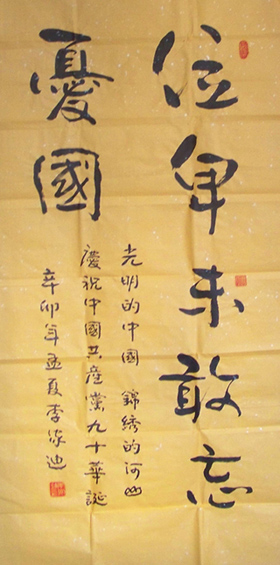 位卑未敢忘
憂國
光明的中國 錦绣的河山
慶祝中國共産黨九十華誕
辛卯年孟夏李家迪